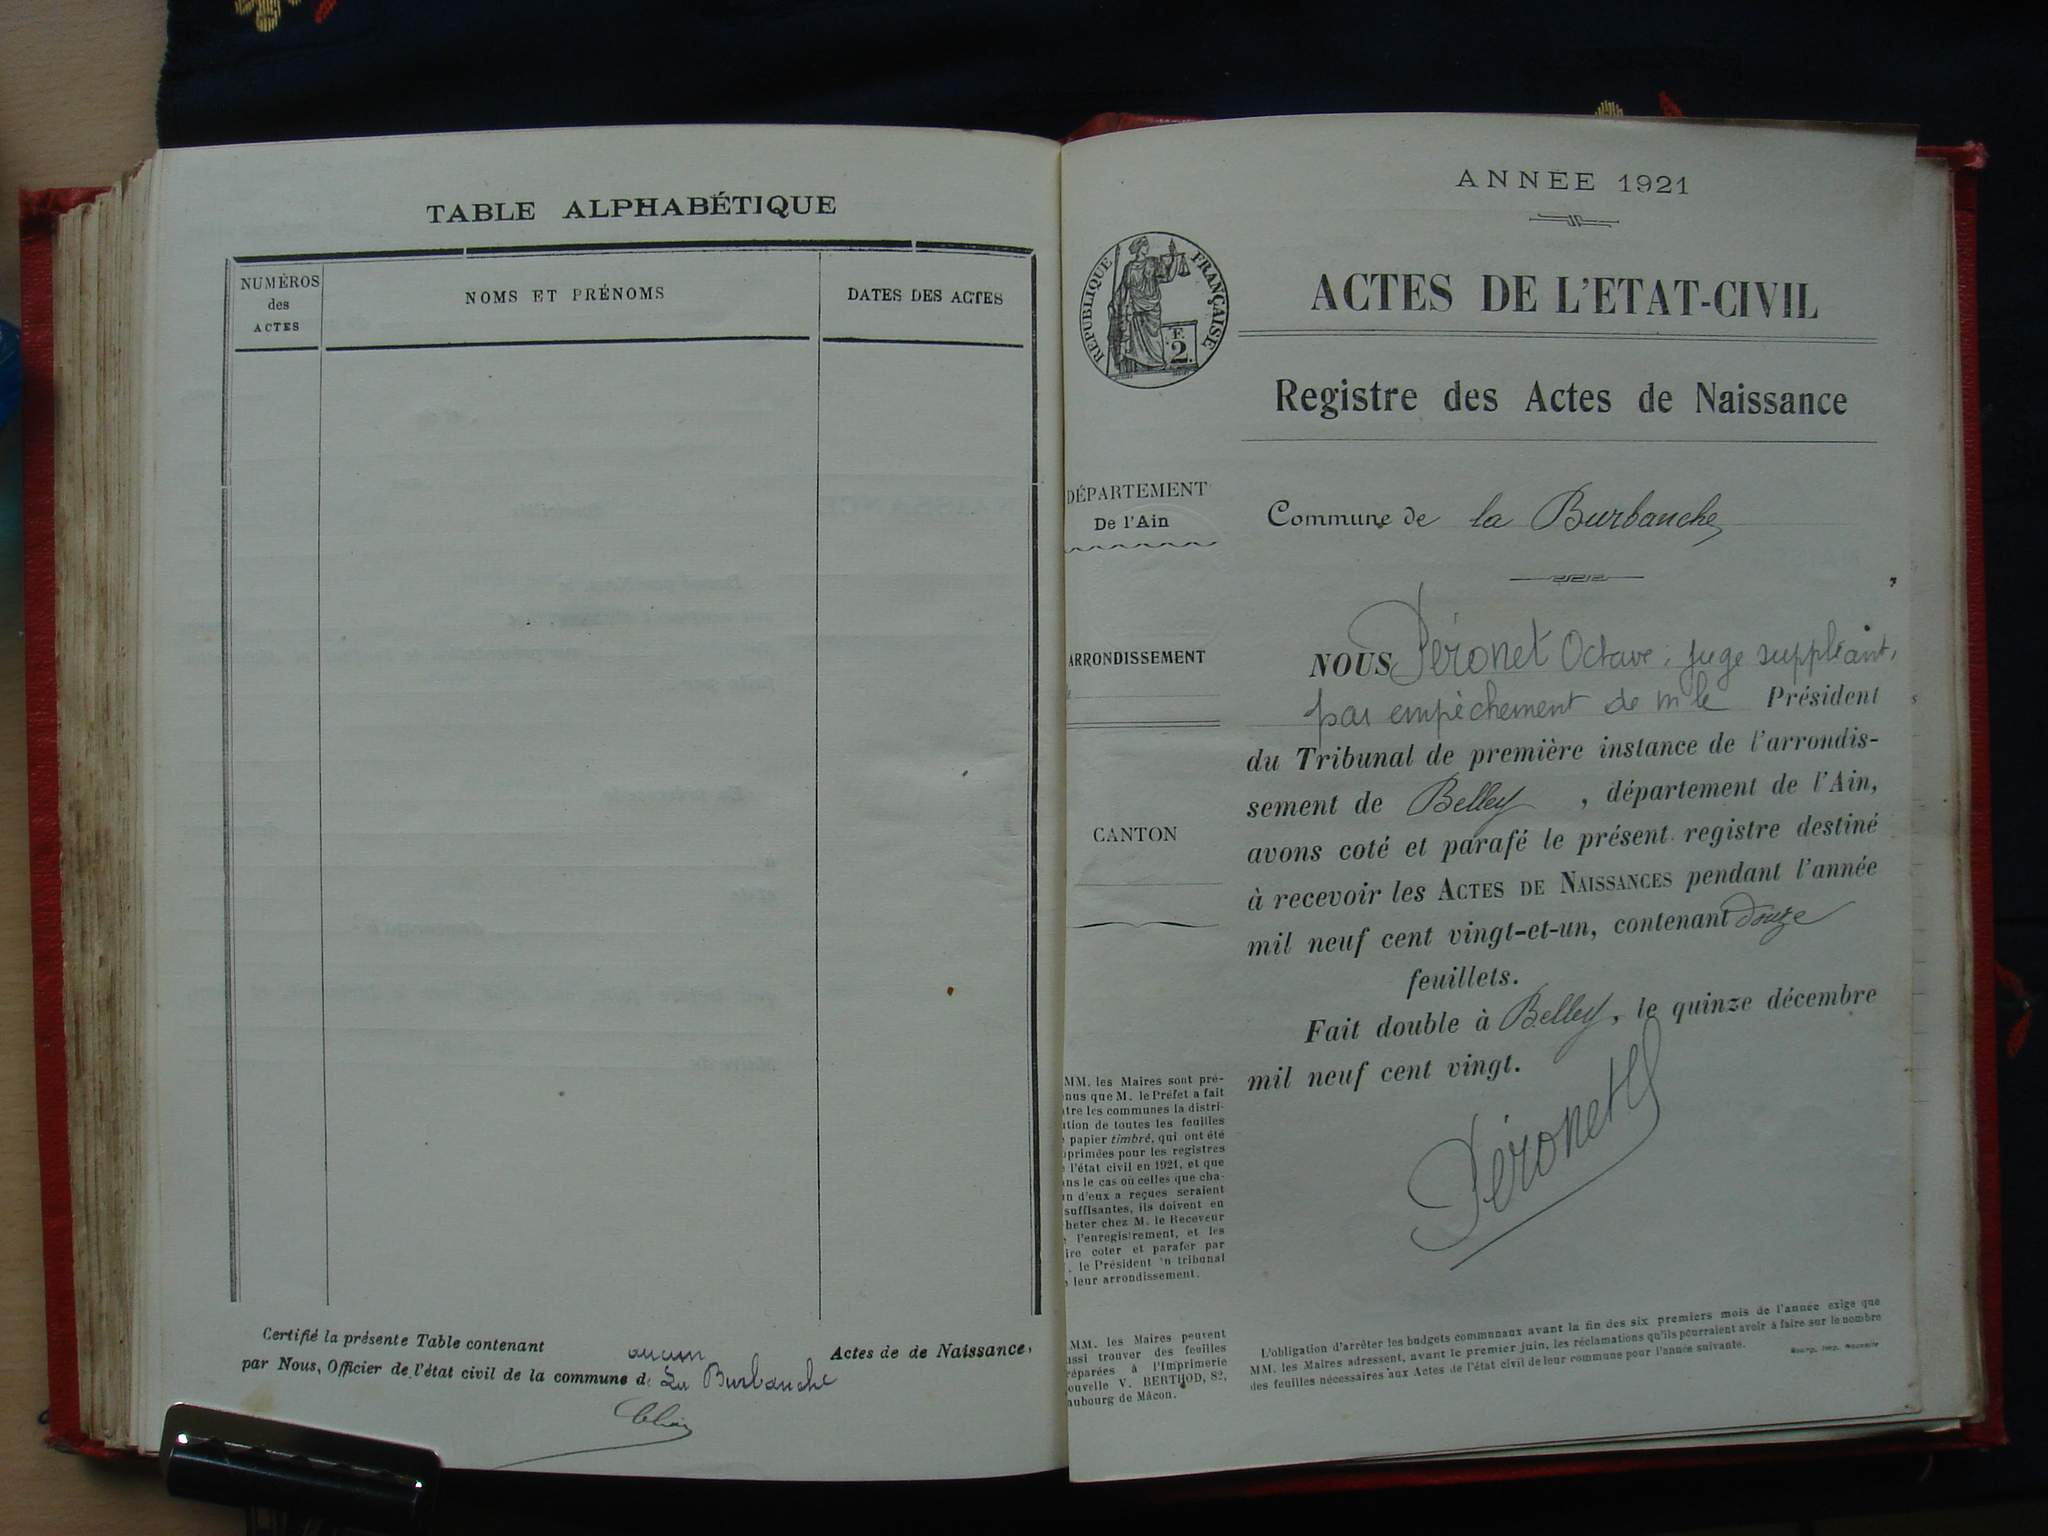 TABLE ALPHABÉTIQUE
NUMÉROS
des
ACTES
NOMS ET PRÉNOMS
DATES DES ACTES
Certifié la présente Table contenant aucun Actes de de Naissance,
par Nous, Officier de l'état civil de la commune de La Burbanche
ANNÉE 1921
RÉPUBLIQUE FRANÇAISE
F.
2.
ACTES DE L'ETAT-CIVIL
Registre des Actes de Naissance
DÉPARTEMENT
De l'Ain
ARRONDISSEMENT
CANTON
Commune de la Burbanche
NOUS Péronet Octave, juge suppléant,
par empêchement de m le Président
du Tribunal de première instance de l'arrondis-
sement de Belley, département de l'Ain,
avons coté et parafé le présent registre destiné
à recevoir les ACTES DE NAISSANCES pendant l'année
mil neuf cent vingt-et-un, contenant douze
feuillets.
Fait double à Belley, le quinze décembre
mil neuf cent vingt.
Péronet
MM. les Maires sont pré-
nus que M. le Préfet a fait
tre les communes la distri-
ution de toutes les feuilles
papier timbré, qui ont été
primées pour les registres
l'état civil en 1921, et que
ns le cas où celles que cha-
n d'eux a reçues seraient
suffisantes, ils doivent en
heter chez M. le Receveur
l'enregistrement, et les
ire coter et parafer par
. le Président 'n tribunal
leur arrondissement.
MM. les Maires peuvent
ussi trouver des feuilles
réparées à l'Imprimerie
ouvelle V. BERTHOD, 82,
aubourg de Mâcon.
L'obligation d'arrêter les budgets communaux avant la fin des six premiers mois de l'année exige que
MM. les Maires adressent, avant le premier juin, les réclamations qu'ils pourraient avoir à faire sur le nombre
des feuilles nécessaires aux Actes de l'état civil de leur commune pour l'année suivante.
Bourg, imp.